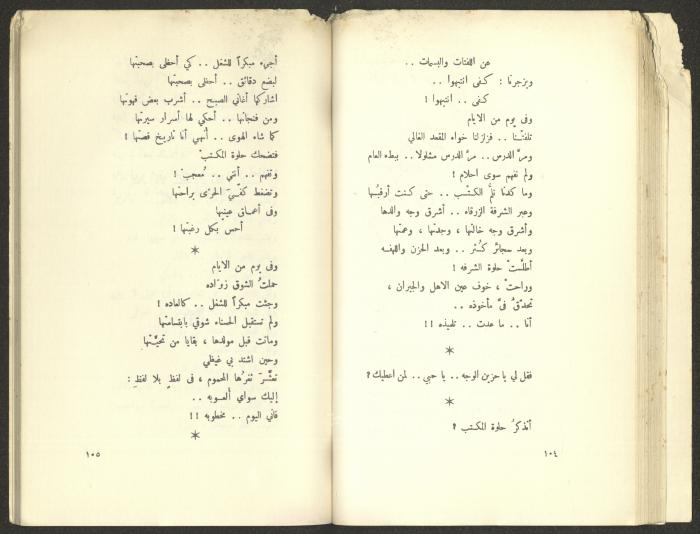 عن اللفتات والبسمات . .
ويزجرنا : كـفى انتبهوا . .
كـفى . . انتبهوا !
وفى يوم من الايام
تلفتـّـنا . . فزلزلنا خواء المقعد الغالي
ومرَّ الدرس . . مرَّ الدرس مشلولا . . ببطء العام
ولم نفهم سوى احلام !
وما كدنا نلمُّ الكـتـْب . . حتى كـنت أرقبُـها
وعبر الشرفة الزرقاء . . أشرق وجه والدها
وأشرق وجه خالتها ، وجدتها ، وعمتها
وبعد سجائر كـُـثـر . . وبعد الحزن واللهفـه
أطلـَّـت حلوة الشرفه !
وراحت ، خوف عين الاهل والجيران ،
تحدّقُ فىَّ مأخوذه . .
أنا . . ما عدت . . تلميذه !!
*
فقل لي يا حزين الوجه . . يا حبي . . لمن اعطيك ؟
*
أتذكرُ حلوة المكـتب ؟
١٠٤
أجيء مبكراً للشغل . . كي أحظى بصحبتها
لبضع دقائق . . أحظى بصحبتها
اشاركها أغاني الصبح . . أشرب بعض قهوتها
ومن فنجانها . . أحكي لها أسرار سيرتها
كما شاء الهوى . . أُنهي أنا تاريخ قصتها !
فتضحك حلوة المكـتـب
وتفهم . . أنني . . مُعجبْ !
وتضغط كفـّـيَ الحرّى براحتها
وفى أعمـاق عينيها
أحس بكل رغبتها !
*
وفى يوم من الايام
حملتُ الشوق زوّاده
وجئت مبكراً للشغل . . كالعاده !
ولم تستقبل الحسناء شوقي بابتسامتها
وماتت قبل مولدها ، بقايا من تحيـّـتها
وحين اشتد بي غيظي
تعثـّـرَ ثغرُها المحموم ، فى لفظٍ بلا لفظِ :
إليك سواي ألعـوبه . .
فاني اليوم . . مخطوبه !!
*
١٠٥